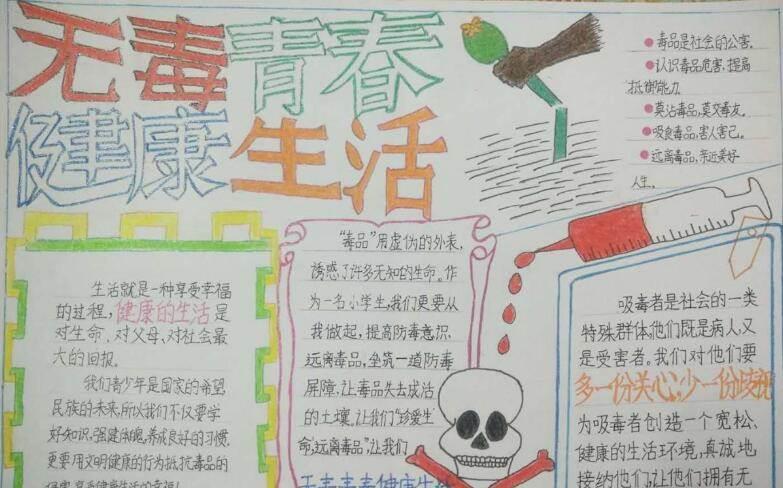 无毒青春
健康生活
毒品是社会的公害.
认识毒品危害,提高
抵御能力
莫沾毒品,莫交毒友.
吸食毒品,害人害己.
远离毒品,亲近美好
人生.
生活就是一种享受幸福
的过程,健康的生活是
对生命、对父母、对社会最
大的回报.
我们青少年是国家的希望
民族的未来,所以我们不仅要学
好知识,强健体魄,养成良好的习惯,
更要用文明健康的行为抵抗毒品的
侵害,享受健康生活的幸福!
"毒品"用虚伪的外表,
诱惑了许多无知的生命.作
为一名小学生,我们更要从
我做起,提高防毒意识,
远离毒品,坐筑一道防毒
屏障,让毒品失去成活
的土壤,让我们"珍爱生
命,远离毒品",让我们
无毒青春健康生活
吸毒者是社会的一类
特殊群体,他们既是病人,又
是受害者。我们对他们要
多一份关心;少一份歧视
为吸毒者创造一个宽松、
健康的生活环境,真诚地
接纳他们,让他们拥有无